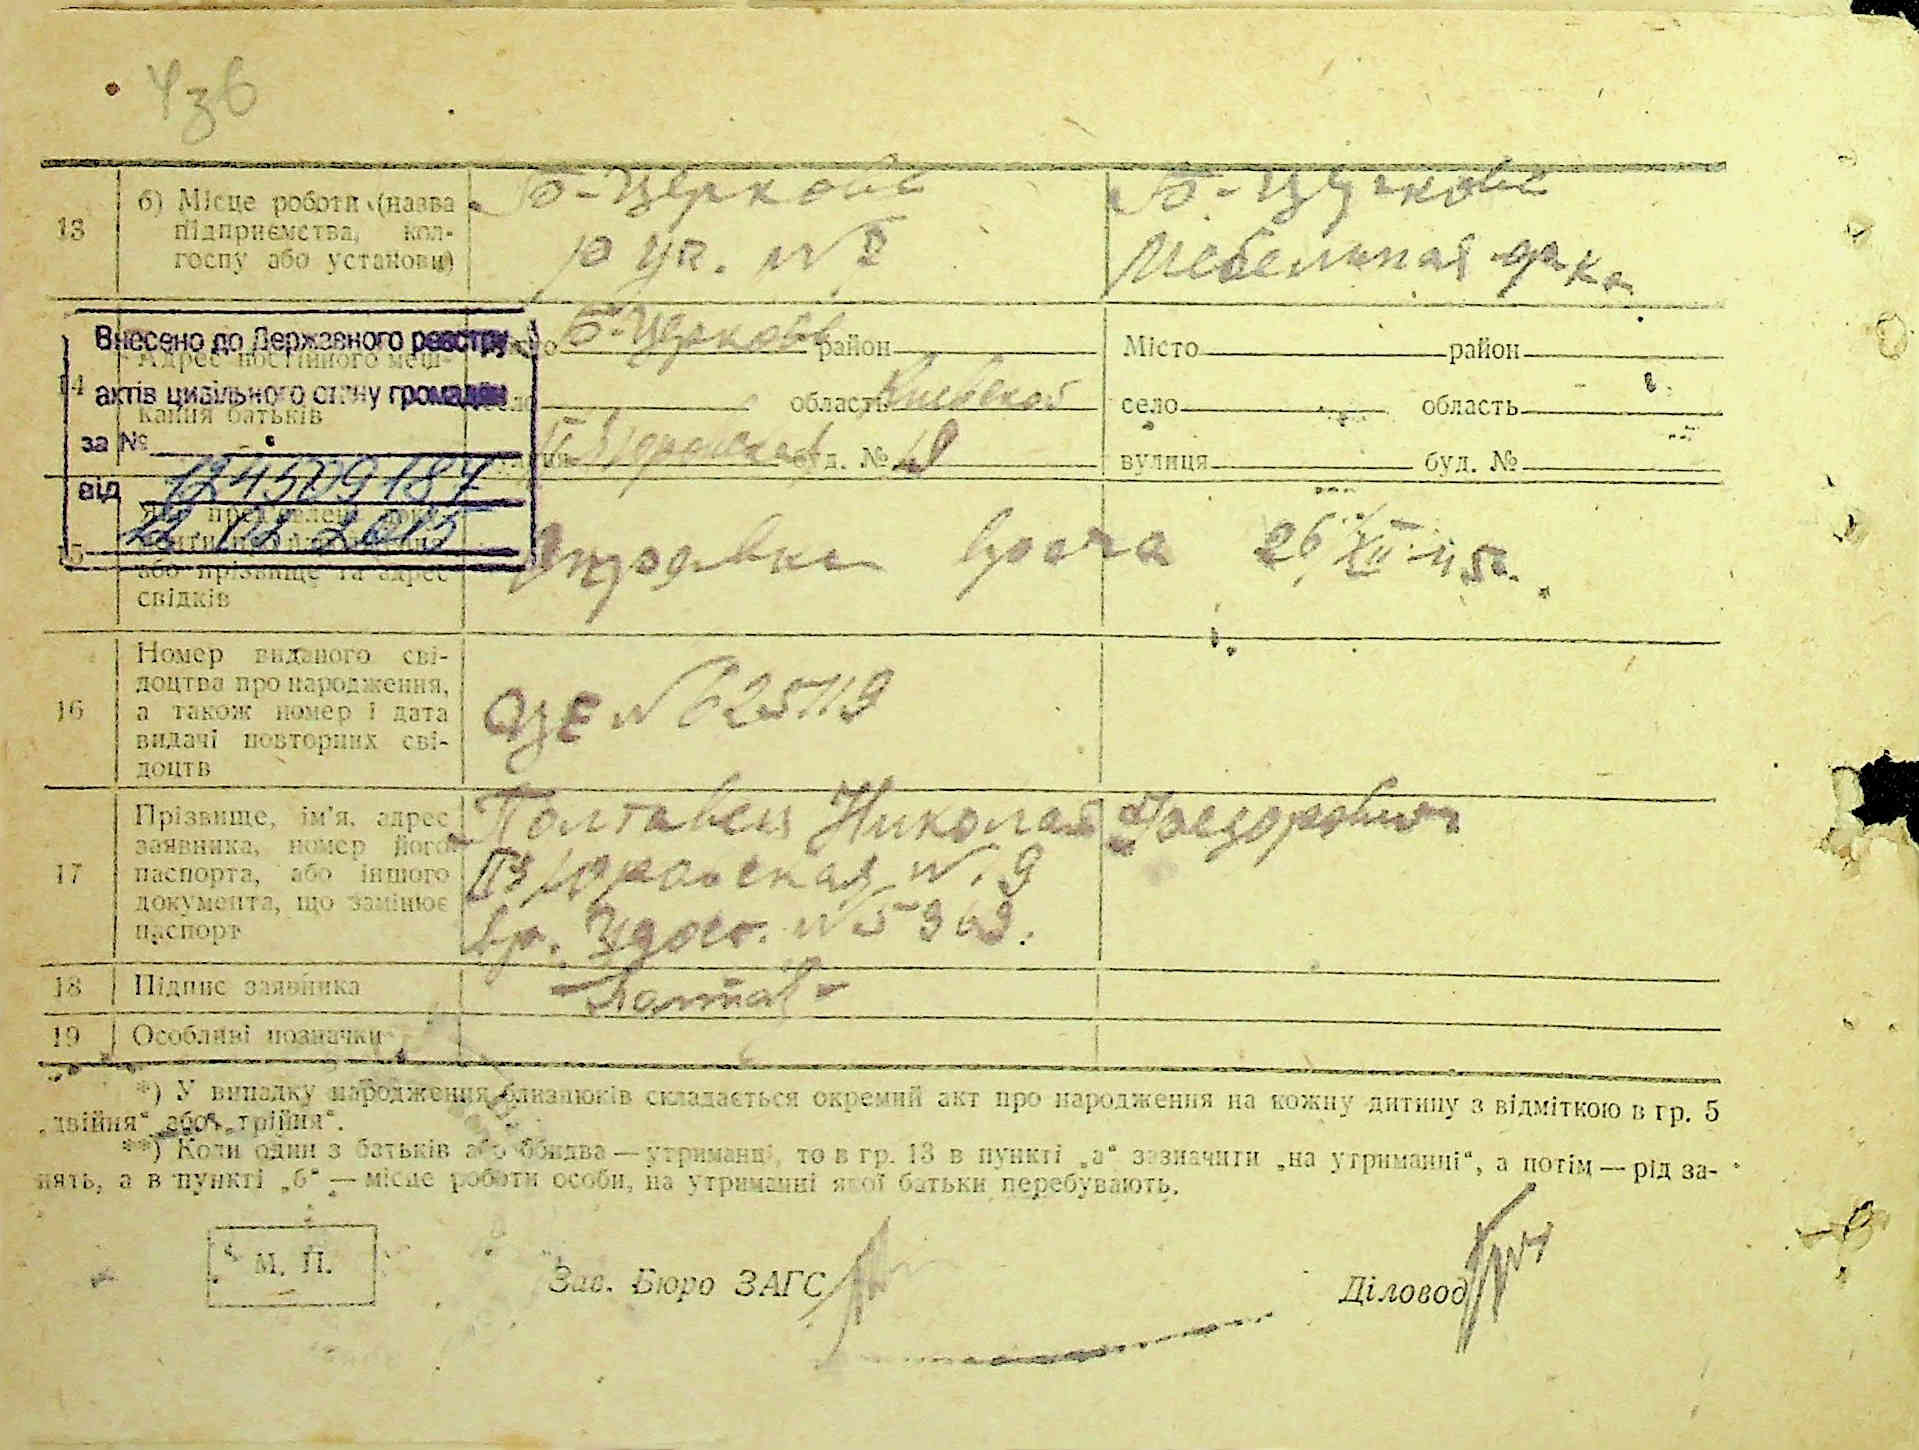 436
13 б) Місце роботи (назва підприємства, кол-госпу або установи)
Б-Церковь
р уч. №
Б-Церковь
Мебельная ф-ка
14 Адрес постійного меш-
кання батьків
Б-Церковь район
область Киевской
буд. № 9
Місто район
село область
вулиця буд. №
Внесено до Державного реєстру
актів цивільного стану громадян
за №
124509187
від 12 2015
15
або прізвище та адрес
свідків
Справка врача 26/XII-45г.
16 Номер виданого сві-
доцтва про народження,
а також номер і дата
видачі повторних сві-
доцтв
№ 625119
17 Прізвище, ім'я, адрес
заявника, номер його
паспорта, або іншого
документа, що замінює
паспорт
Полтавец Николай Феодорович
№. 9
вр. Удост. № 5969.
18 Підпис заявника
19 Особливі позначки
*) У випадку народження близнюків складається окремий акт про народження на кожну дитину з відміткою в гр. 5
„двійня“ або „трійня“.
**) Коли один з батьків або обидва — утриманці, то в гр. 13 в пункті „а“ зазначити „на утриманні“, а потім — рід за-
нять, а в пункті „б“ — місце роботи особи, на утриманні якої батьки перебувають.
М. П.
Зав. Бюро ЗАГС
Діловод